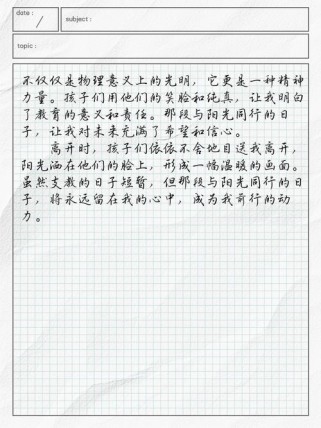 date :
subject :
/
topic :
不仅仅是物理意义上的光明，它更是一种精神
力量。孩子们用他们的笑脸和纯真，让我明白
了教育的意义和责任。那段与阳光同行的日
子，让我对未来充满了希望和信心。
离开时，孩子们依依不舍地目送我离开，
阳光洒在他们的脸上，形成一幅温暖的画面。
虽然支教的日子短暂，但那段与阳光同行的日
子，将永远留在我的心中，成为我前行的动
力。